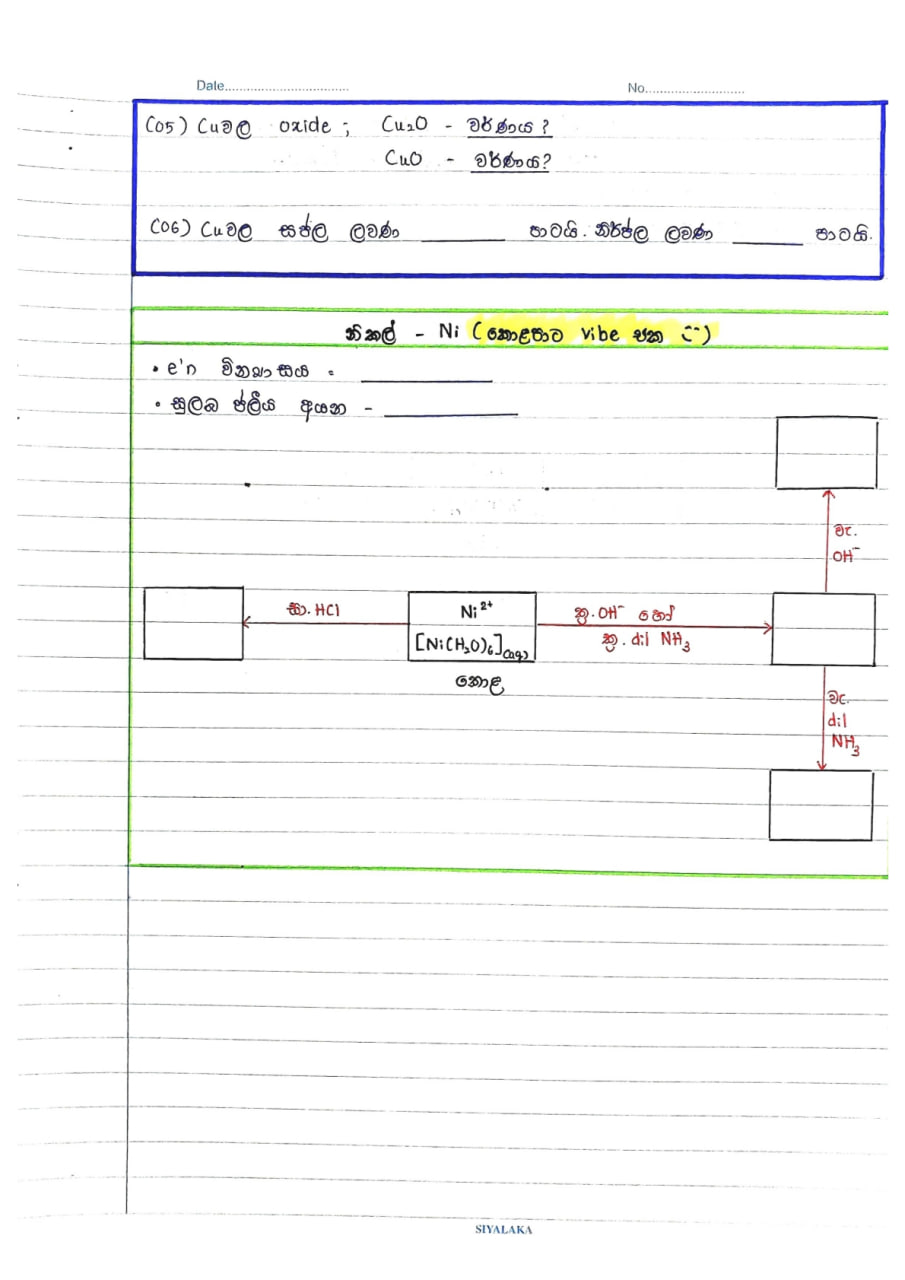 Date.................................. No...........................
(05) Cuවල oxide ; Cu₂O - වර්ණය ?
CuO - වර්ණය?
(06) Cuවල සජල ලවණ ________ පාටයි. නිර්ජල ලවණ ________ පාටයි.
නිකල් - Ni (කොළපාට vibe එක ︶)
• e'n වින්‍යාසය - ________
• සුලබ ජලීය අයන - ________
වැ.
OH⁻
සා. HCl
Ni²⁺
[Ni(H₂O)₆](aq)
කොළ
ක්‍ර. OH⁻ හෝ
ක්‍ර. dil NH₃
වැ.
dil
NH₃
SIYALAKA